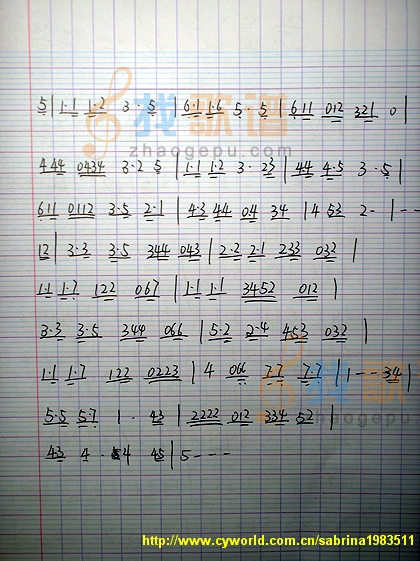 5 | 1·1 1·2 3·5 | 6·1 1·6 5·5 | 611 012 321 0 |
找歌谱
zhaogepu.com
444 0434 3·2 5 | 1·1 1·2 3·23 | 44 4·5 3·5 |
611 0112 3·5 2·1 | 4·3 44 04 34 | 4 53 2- | --
12 | 3·3 3·5 344 043 | 2·2 2·1 233 032 |
1·1 1·7 122 067 | 1·1 1·1 3452 012 |
3·3 3·5 344 066 | 5·2 2·4 453 032 |
找歌谱
1·1 1·7 122 0223 | 4 066 7·7 7·7 | 1--34 |
zhaogepu
5·5 57 1· 43 | 2222 012 334 52 |
43 4· 4 45 | 5---
http://www.cyworld.com.cn/sabrina1983511